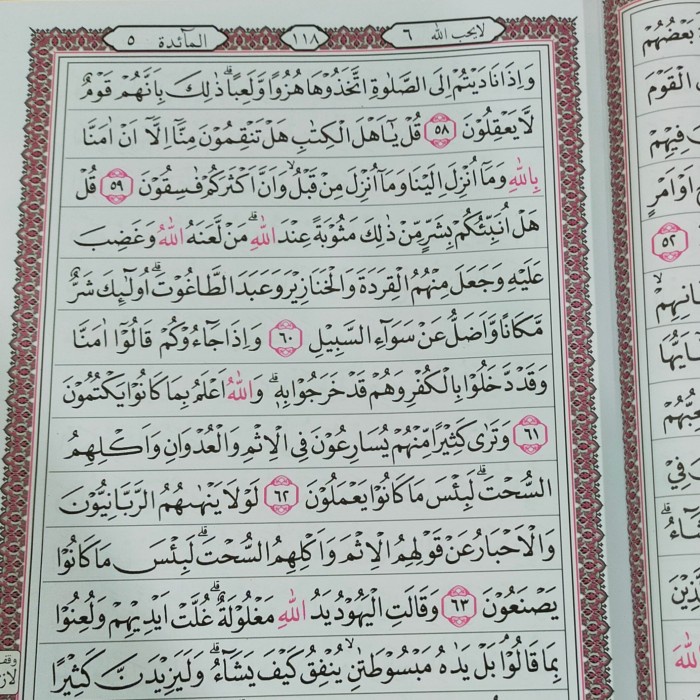 لايحب الله ٦
١١٨
المآئدة ٥
وَاِذَا نَادَيْتُمْ اِلَى الصَّلٰوةِ اتَّخَذُوهَا هُزُوًا وَّلَعِبًاۗ ذٰلِكَ بِاَنَّهُمْ قَوْمٌ
لَّا يَعْقِلُوْنَ ٥٨ قُلْ يٰٓاَهْلَ الْكِتٰبِ هَلْ تَنْقِمُوْنَ مِنَّآ اِلَّآ اَنْ اٰمَنَّا
بِاللّٰهِ وَمَآ اُنْزِلَ اِلَيْنَا وَمَآ اُنْزِلَ مِنْ قَبْلُۙ وَاَنَّ اَكْثَرَكُمْ فٰسِقُوْنَ ٥٩ قُلْ
هَلْ اُنَبِّئُكُمْ بِشَرٍّ مِّنْ ذٰلِكَ مَثُوْبَةً عِنْدَ اللّٰهِۗ مَنْ لَّعَنَهُ اللّٰهُ وَغَضِبَ
عَلَيْهِ وَجَعَلَ مِنْهُمُ الْقِرَدَةَ وَالْخَنَازِيْرَ وَعَبَدَ الطَّاغُوْتَۗ اُولٰٓئِكَ شَرٌّ
مَّكَانًا وَّاَضَلُّ عَنْ سَوَآءِ السَّبِيْلِ ٦٠ وَاِذَا جَآءُوْكُمْ قَالُوْٓا اٰمَنَّا
وَقَدْ دَّخَلُوْا بِالْكُفْرِ وَهُمْ قَدْ خَرَجُوْا بِهٖۗ وَاللّٰهُ اَعْلَمُ بِمَا كَانُوْا يَكْتُمُوْنَ
٦١ وَتَرٰى كَثِيْرًا مِّنْهُمْ يُسَارِعُوْنَ فِى الْاِثْمِ وَالْعُدْوَانِ وَاَكْلِهِمُ
السُّحْتَۗ لَبِئْسَ مَا كَانُوْا يَعْمَلُوْنَ ٦٢ لَوْلَا يَنْهٰىهُمُ الرَّبَّانِيُّوْنَ
وَالْاَحْبَارُ عَنْ قَوْلِهِمُ الْاِثْمَ وَاَكْلِهِمُ السُّحْتَۗ لَبِئْسَ مَا كَانُوْا
يَصْنَعُوْنَ ٦٣ وَقَالَتِ الْيَهُوْدُ يَدُ اللّٰهِ مَغْلُوْلَةٌۗ غُلَّتْ اَيْدِيْهِمْ وَلُعِنُوْا
بِمَا قَالُوْاۘ بَلْ يَدٰهُ مَبْسُوْطَتٰنِۙ يُنْفِقُ كَيْفَ يَشَآءُۗ وَلَيَزِيْدَنَّ كَثِيْرًا
بَعْضُهُمْ
الْقَوْمَ
فِيْهِمْ
اَوْ اَمْرٍ
٥٢